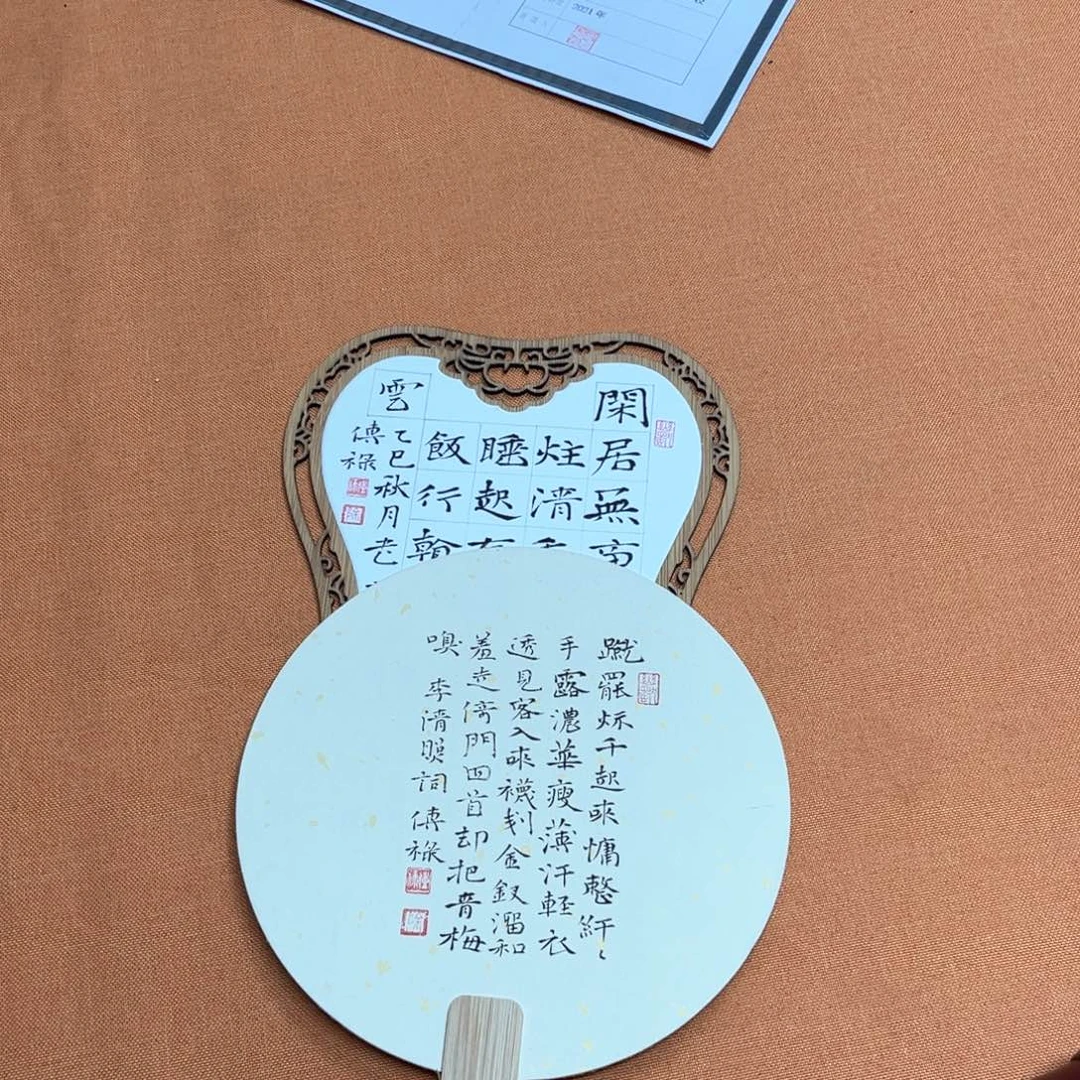 2021年
閑居無
炷清
睡起
飯行
雲
乙巳秋月
傅祿
蹴罷秋千起來慵整纤〻
手露濃華瘦薄汗軽衣
透見客入來襪剗金釵溜和
羞走倚門回首却把青梅
嗅 李清照詞 傅祿